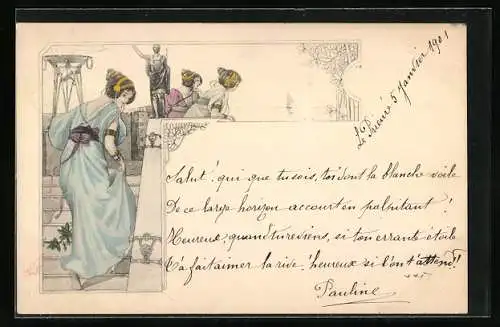 Le Pirée 5 Janvier 1901
Salut! qui que tu sois, toi dont la blanche voile
De ce large horizon accourt en palpitant!
Heureux, quand tu reviens, si ton errante étoile
T'a fait aimer la rive! heureux si l'on t'attend!!
Pauline